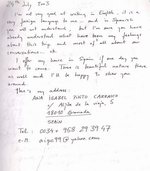 24th July 2003
I'm not very good at writing in English, it is a
very foreign language to me, and in Spanish
you will not understand, but I'm sure you have
already understood what have been my feelings
about this trip and most of all about our
conversations.
I offer my house in Spain if one day you
want to come. There is beautiful nature there
as well and I'll be happy to show you
around.
This is my address
ANA ISABEL PINTO CARRASCO
c/ de la vieja, 5
18010 Granada
SPAIN
Tel: 0034 958 29 39 47
e-m: @yahoo.com